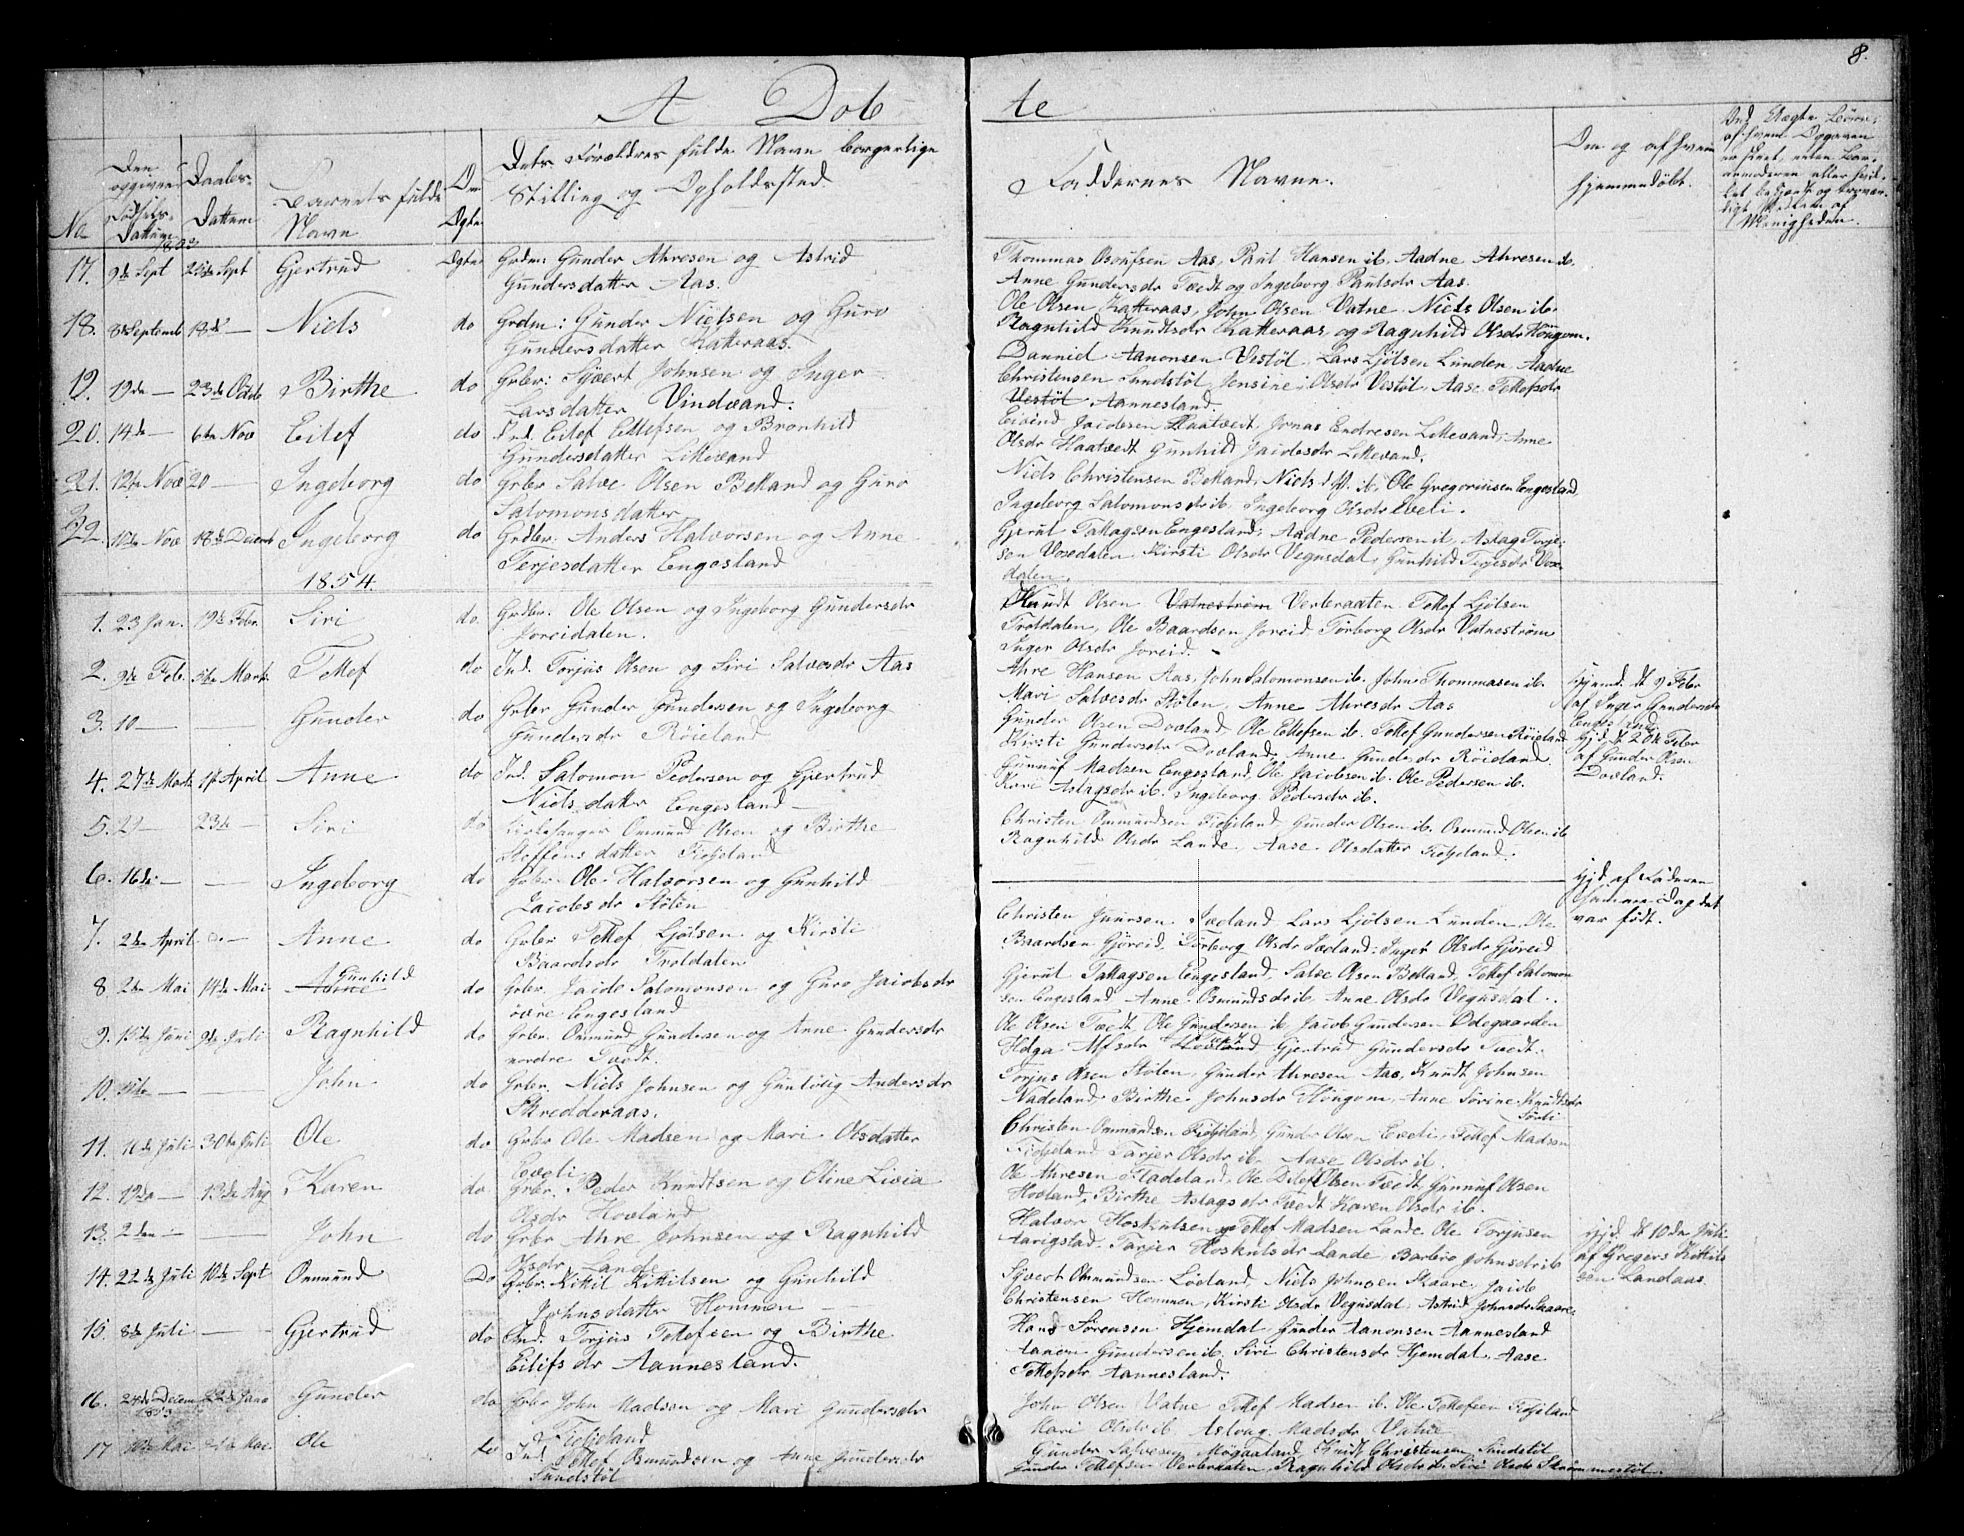 8.
A Døbte
No
Den opgivne Fødsels-Dattum
Daabs-Dattum
Barnets fulde Navn
Om Ægte
Dets Forældres fulde Navn borgerlige
Stilling og Opholdssted
Faddernes Navne.
Om og af hvem
hjemmedøbt.
Menigheden.
1853
17. 9de Sept Sept Gjertrud Ægte Grdm: Gunder Ahresen og Astrid
Gundersdatter Aas.
Thommas Aas, Paul Hansen ib. Aadne Ahresen ib.
Anne Gundersdr Tvedt og Ingeborg Paulsdr Aas.
18. 8de Septemb 18de — Niels do Grdm: Gunder Nielsen og Guro
Gundersdatter Katteraas.
Ole Olsen Katteraas, John Olsen Vatne Niels Olsen ib.
Ragnhild Knudtsdr Katteraas, og Ragnhild Olsdr Hongom.
19. 19de — 23de Octb Birthe do Grbr: Syvert Johnsen og Inger
Larsdatter Vindvand.
Danniel Aanonsen Vestøl. Lars Ljølsen Lunden, Aadne
Christensen Sundstøl, Jensine Olsdr Vestøl, Aase Tellefsdr
Vestøl Aannesland.
20. 14de — 6te Nov Eilef do Ind. Eilef Ellefsen og Bronhild
Gundersdatter Litlevand
Eivind Jacobsen Haatvedt, Jornas Endresen Litlevand, Anne
Olsdr Haatvedt Gunhild Jacobsdr Litlevand.
21. 12te Nov 20 — Ingeborg do Grbr Salve Olsen Betland og Guro
Salomonsdatter
Niels Christensen Betland, Niels ib. Ole Gregoriusen Engesland,
Ingeborg Salomonsdr ib. Ingeborg Olsdr Eveli.
22. 10de Nov 18de Decemb Ingeborg do Grdbr. Anders Halvorsen og Anne
Terjesdatter Engesland
Gjerul Tallagsen Engesland, Aadne Pedersen ib, Aslag Torje-
sen Voredalen, Kirsti Olsdr Vegusdal, Gunhild Terjesdr Vore-
dalen.
1854.
1. 23 Jan. 19de Febr. Siri do Grdbr. Ole Olsen og Ingeborg Gundersdr
Joreidalen.
Knudt Olsen Vatnestrøm Verleraaten Tellef Ljølsen
Troldalen, Ole Baardsen Joreid, Torborg Olsdr Vatnestrøm
Inger Olsdr Joreid.
2. 9de Feb. 5te Mart. Tellef do Ind. Torjus Olsen og Siri Salvesdr Aas
Ahre Hansen Aas, John Salomonsen ib. John Thommasen ib.
Mari Salvesdr Stølen, Anne Ahresdr Aas
Hjemd. dt 9 Febr
af Inger Gundersdr
Engesland
3. 10 — — Gunder do Grbr Gunder Gundersen og Ingeborg
Gundersdr Røieland
Gunder Olsen Dovland, Ole Ellefsen ib. Tellef Gundersen Røieland
Kirsti Gundersdr Dovland, Anne Gundersdr Røieland.
Hjd. dt 20de Febr
af Gunder Olsen
Dovland.
4. 27de Marts 17 April Anne do Ind. Salomon Pedersen og Gjertrud
Nielsdatter Engesland
Gunnuf Madsen Engesland, Ole Jacobsen ib. Ole Pedersen ib.
Kari Aslagsdr ib. Ingeborg Pedersdr ib.
5. 29 — 23de — Siri do Kirkesanger Onmund Olsen og Birthe
Steffensdatter Fidjeland
Christen Onmundsen Fidjeland Gunder Olsen ib. Osmund Olsen ib
Ragnhild Olsdr Lande, Aase Olsdatter Fidjeland.
6. 16de — — Ingeborg do Grbr Ole Halvorsen og Gunhild
Jacobsdr Stølen
Hjd. af Faderen
samme Dag det
var født.
7. 2den April — Anne do Grbr Tellef Ljølsen og Kirsti
Baardsdr Troldalen
Christen Lars Ljølsen Lunden, Ole
Baardsen Gjoreid, Torborg Olsdr Inger Olsdr Gjoreid
8. 2den Mai 14de Mai Anne Gunhild do Grbr. Jacob Salomonsen og Guro Jacobsdr
øvre Engesland
Gjerul Tallagsen Engesland, Salve Olsen Betland, Tellef Salomon
sen Engesland Anne Osmundsdr ib. Anne Olsdr Vegusdal.
9. 15de Juni 9de Juli Ragnhild do Grbr. Onmund Gundersen og Anne Gundersdr
nordre Tvedt.
Ole Olsen Tvedt, Ole Gundersen ib Jacob Gundersen Ødegaarden
Helga Gjertrud Gundersdr Tvedt.
10. — — John do Grbr. Niels Johnsen og Guntolug Andersdr
Skredderaas.
Torjus Olsen Stølen, Gunder Ahresen Aas, Knudt Johnsen
Nadeland Birthe Johnsdr Hongom, Anne Sorine Knudtsdr
11. 16de Juli 30te Juli Ole do Grbr Ole Madsen og Mari Olsdatter
Eveli
Christen Onmundsen Fidjeland, Gunder Olsen Eveli, Tellef Madsen
Fidjeland Tarjer Olsdr ib. Aase Olsdr ib.
12. 19de — 13de Aug Karen do Grbr. Peder Knudtsen og Oline Livia
Olsdr Hovland
Ole Ahresen Fladeland, Ole Ditlef Olsen Tvedt Gunnuf Olsen
Hovland, Birthe Aslagsdr Tvedt Karen Olsdr ib.
13. 2den — — John do Grbr Ahre Johnsen og Ragnhild
Olsdr Lande
Halvor Hoskulsen og Tellef Madsen Lande, Ole Torjusen
Aarigstad, Tarjer Hoskulsdr Lande Barbro Johnsdr ib
Hjd. dt 10de Juli
af Gregers Kittel
sen Landaas.
14. 22de Juli 10de Sept Onmund Do Grbr. Kittil Kittilsen og Gunhild
Johnsdatter Hommen
Syvert Onmundsen Lovland, Niels Johnsen Skaare, Jacob
Christensen Hommen, Kirsti Olsdr Vegusdal, Astrid Johnsdr Skaare
15. 8de Juli — Gjertrud do Ind. Torjus Tellefsen og Birthe
Eilifsdr Aannesland.
Hans Sørensen Hjemdal, Gunder Aanonsen Aannesland
Aanon Gundersen ib. Siri Christensdr Hjemdal, Aase
Tellefsdr Aannesland.
16. 24de Decem 1853 22de Janu Gunder do Grbr John Madsen og Mari Gundersdr
Fidjeland
John Olsen Vatne Tellef Madsen ib. Ole Tellefsen Fidjeland
Mari Olsdr ib Aslaug Madsdr Vatne
17. Mai Mai Ole do Ind. Tellef Osmundsen og Anne Gundersdr
Sundstøl
Gunder Salvesen Møgaaland Knudt Christensen Sundstøl
Gunder Tellefsen Verleraaten, Ragnhild Olsdr ib. Siri Olsdr Skrømmestøl.